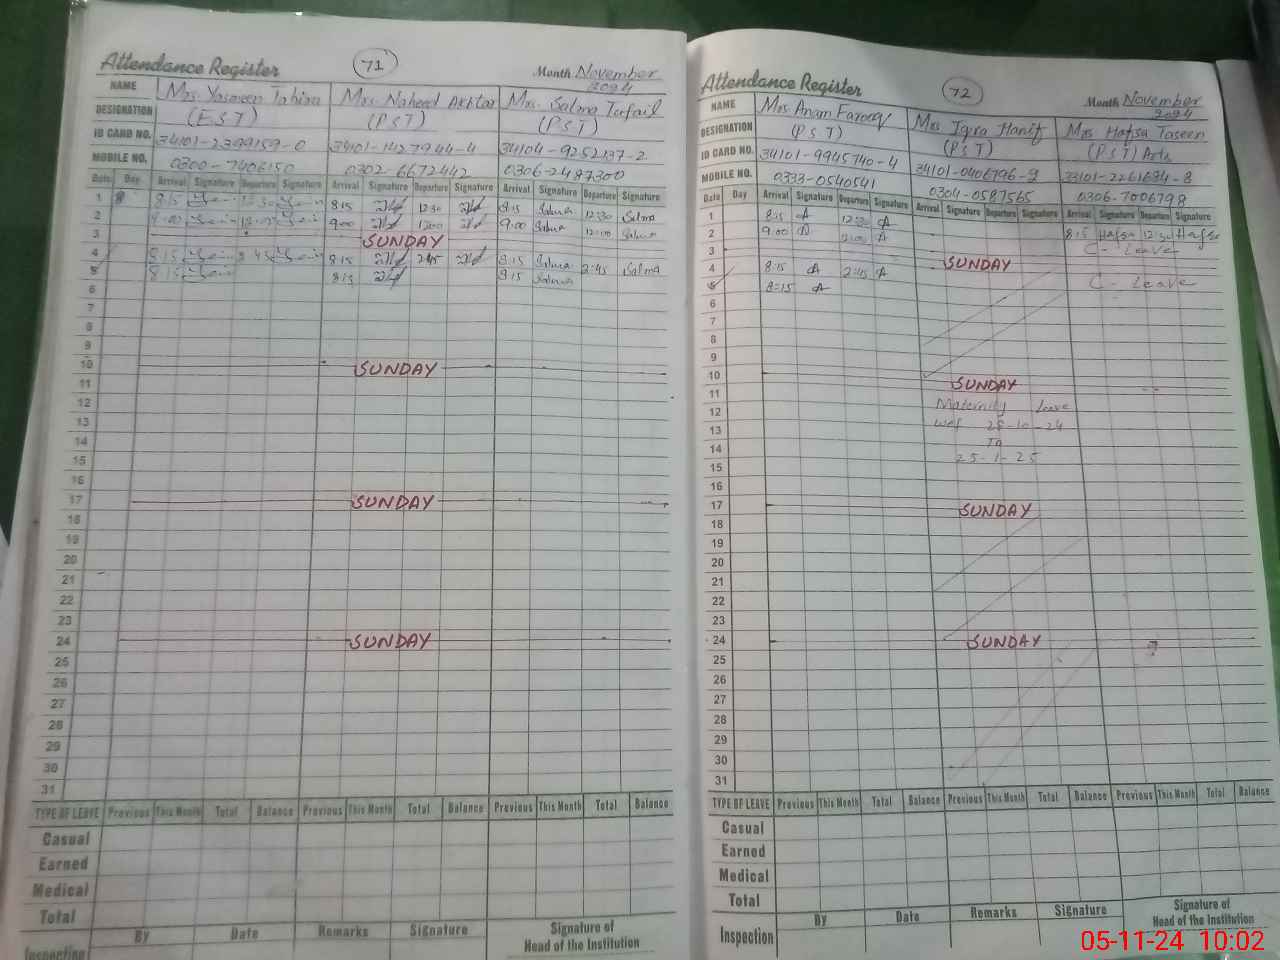 Attendance Register
71
Month November 2024
NAME Mrs. Yasmeen Tahira Mrs. Naheed Akhtar Mrs. Salma Tufail
DESIGNATION (EST) (PST) (PST)
ID CARD NO. 34101-2399159-0 34101-1427944-4 34104-9252137-2
MOBILE NO. 0300-7406150 0302-6672442 0306-2487300
Date Day Arrival Signature Departure Signature Arrival Signature Departure Signature Arrival Signature Departure Signature
1 8:15 12:30 8:15 12:30 8:15 Salma 12:30 Salma
2 9:00 12:00 9:00 12:00 9:00 Salma 12:00 Salma
3 SUNDAY
4 8:15 2:45 8:15 2:45 8:15 Salma 2:45 Salma
5 8:15 8:15 8:15 Salma
6
7
8
9
10 SUNDAY
11
12
13
14
15
16
17 SUNDAY
18
19
20
21
22
23
24 SUNDAY
25
26
27
28
29
30
31
TYPE OF LEAVE Previous This Month Total Balance Previous This Month Total Balance Previous This Month Total Balance
Casual
Earned
Medical
Total
Inspection By Date Remarks Signature Signature of
Head of the Institution
Attendance Register
72
Month November 2024
NAME Mrs. Anam Farooq Mrs Iqra Hanif Mrs Hafsa Taseen
DESIGNATION (PST) (PST) (PST) Arts
ID CARD NO. 34101-9945740-4 34101-0406796-2 33101-2261684-8
MOBILE NO. 0333-0540541 0304-0587565 0306-7006798
Date Day Arrival Signature Departure Signature Arrival Signature Departure Signature Arrival Signature Departure Signature
1 8:15 12:30 8:15 Hafsa 12:30 Hafsa
2 9:00 12:00 C-Leave
3 SUNDAY
4 8:15 2:45 C-Leave
5 8:15
6
7
8
9
10 SUNDAY
11 Maternity Leave
12 wef 28-10-24
13 To
14 25-1-25
15
16
17 SUNDAY
18
19
20
21
22
23
24 SUNDAY
25
26
27
28
29
30
31
TYPE OF LEAVE Previous This Month Total Balance Previous This Month Total Balance Previous This Month Total Balance
Casual
Earned
Medical
Total
Inspection By Date Remarks Signature Signature of
Head of the Institution
05-11-24 10:02